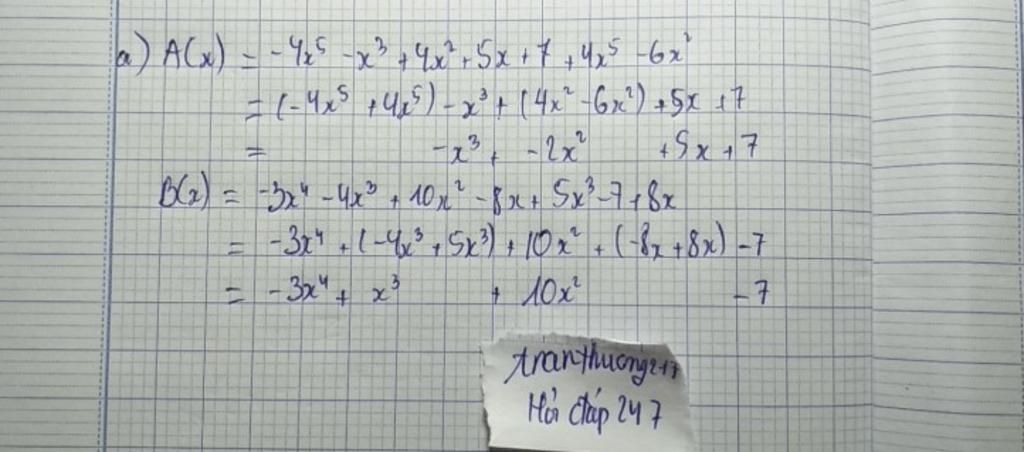 a) A(x) = -4x⁵ - x³ + 4x² + 5x + 7 + 4x⁵ - 6x²
= (-4x⁵ + 4x⁵) - x³ + (4x² - 6x²) + 5x + 7
= -x³ + -2x² + 5x + 7
B(x) = -3x⁴ - 4x³ + 10x² - 8x + 5x³ - 7 + 8x
= -3x⁴ + (-4x³ + 5x³) + 10x² + (-8x + 8x) - 7
= -3x⁴ + x³ + 10x² - 7
tranthuong217
Hỏi đáp 247